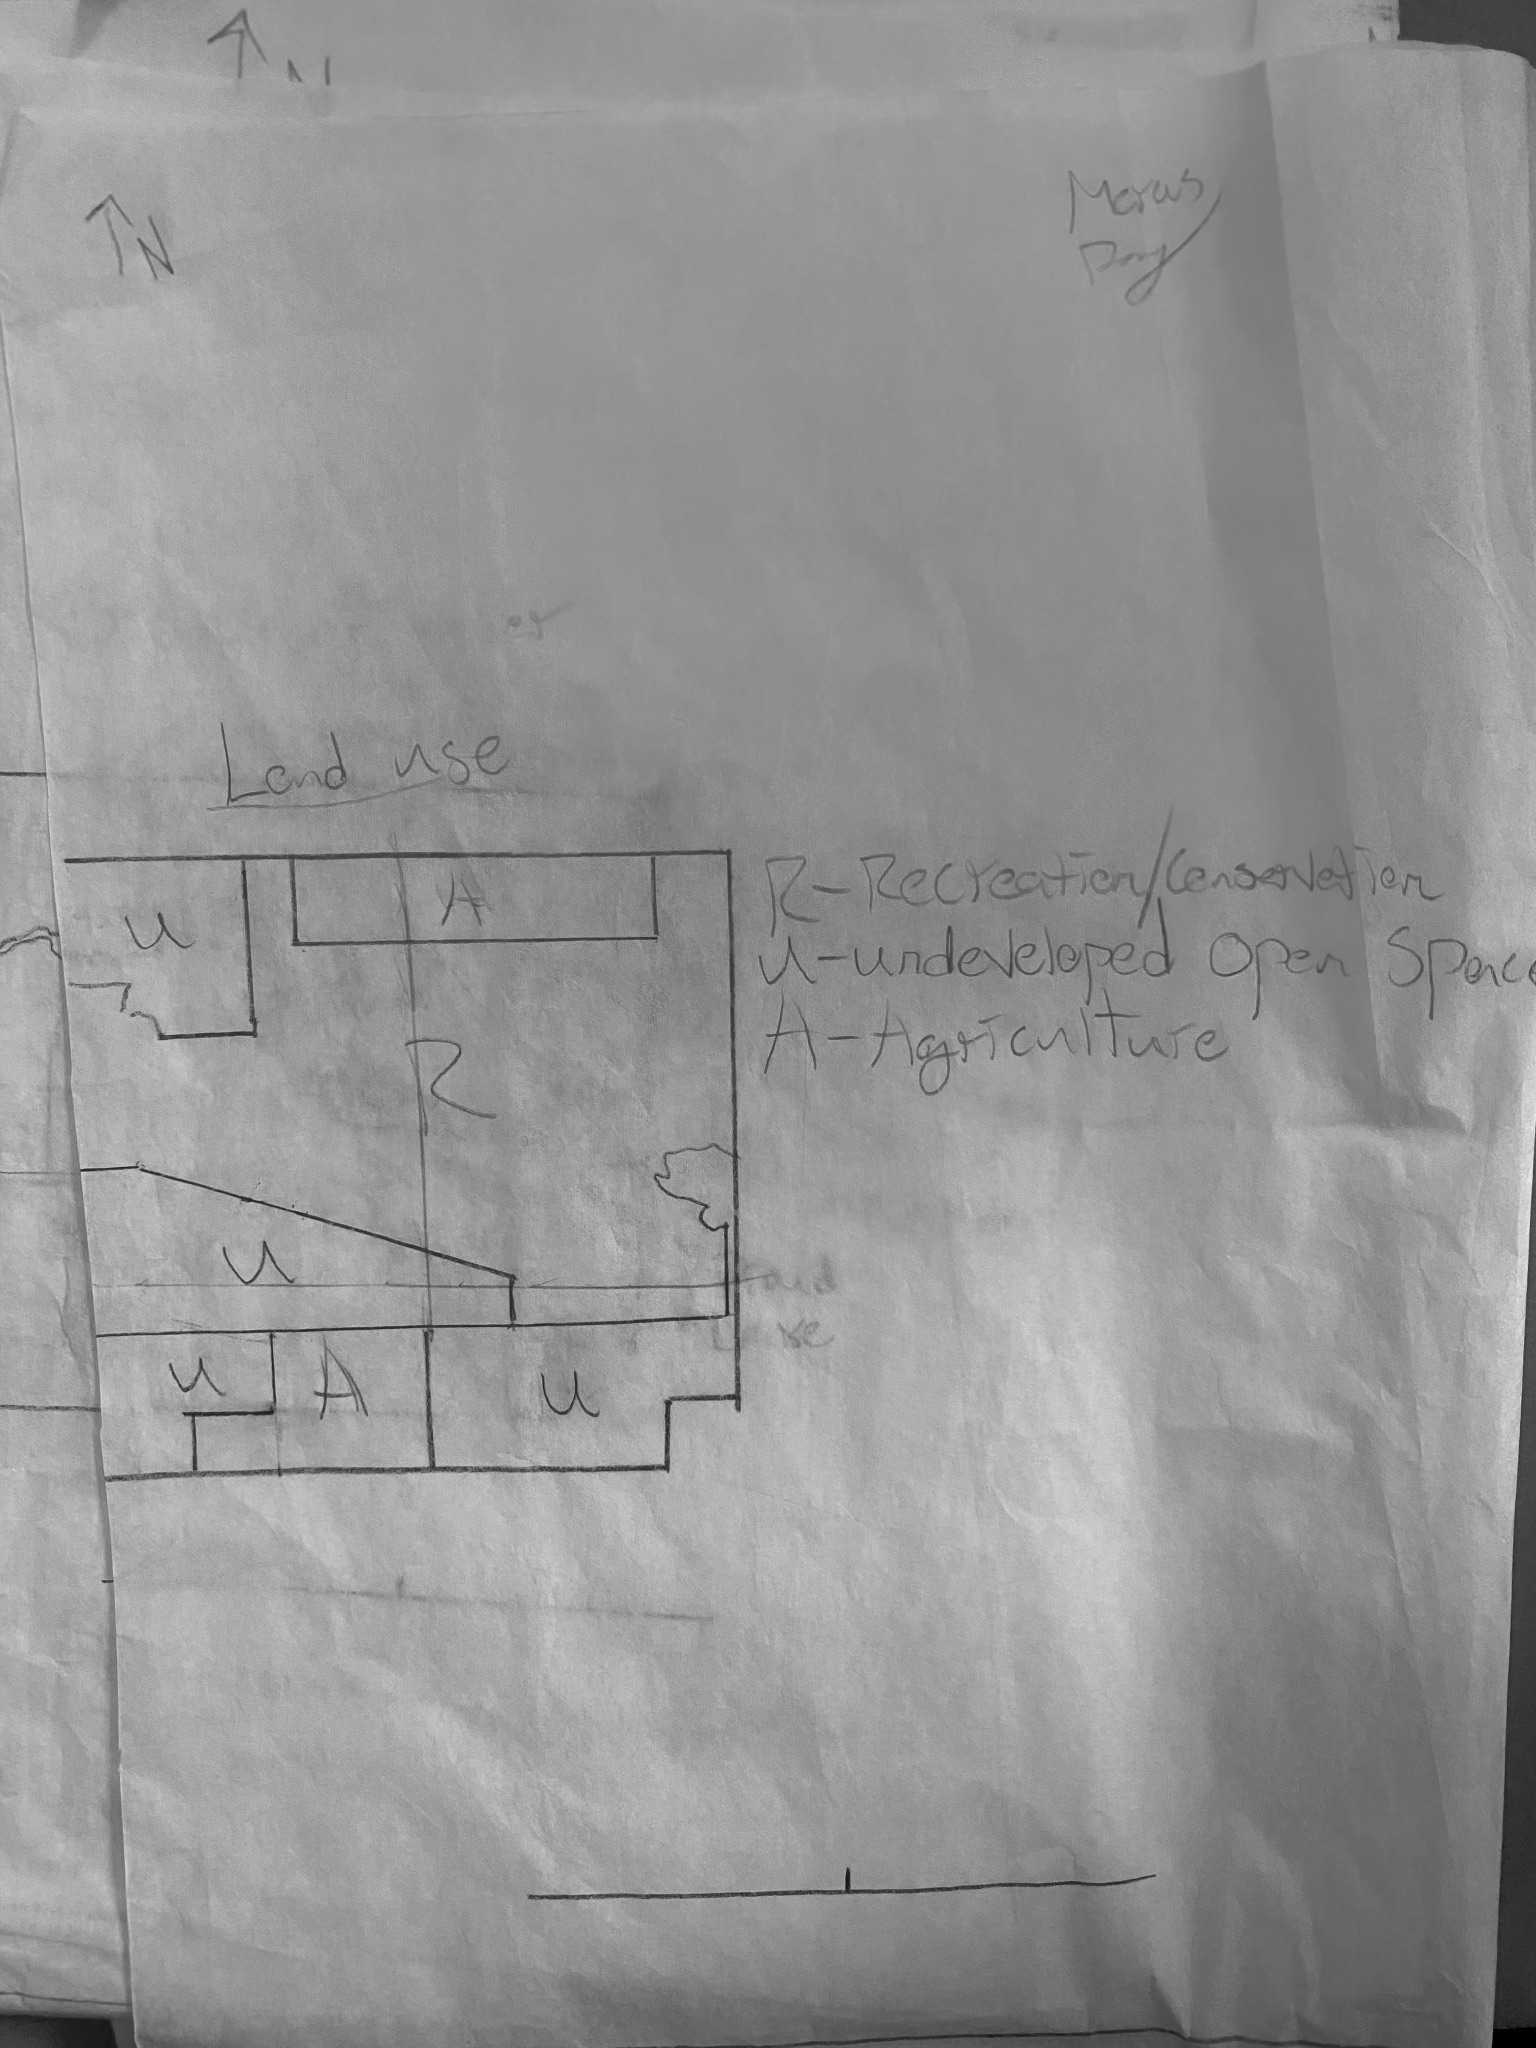 N
N
Land use
U
A
R
U
U
A
U
R-Recreation/Conservation
U-undeveloped Open Space
A-Agriculture